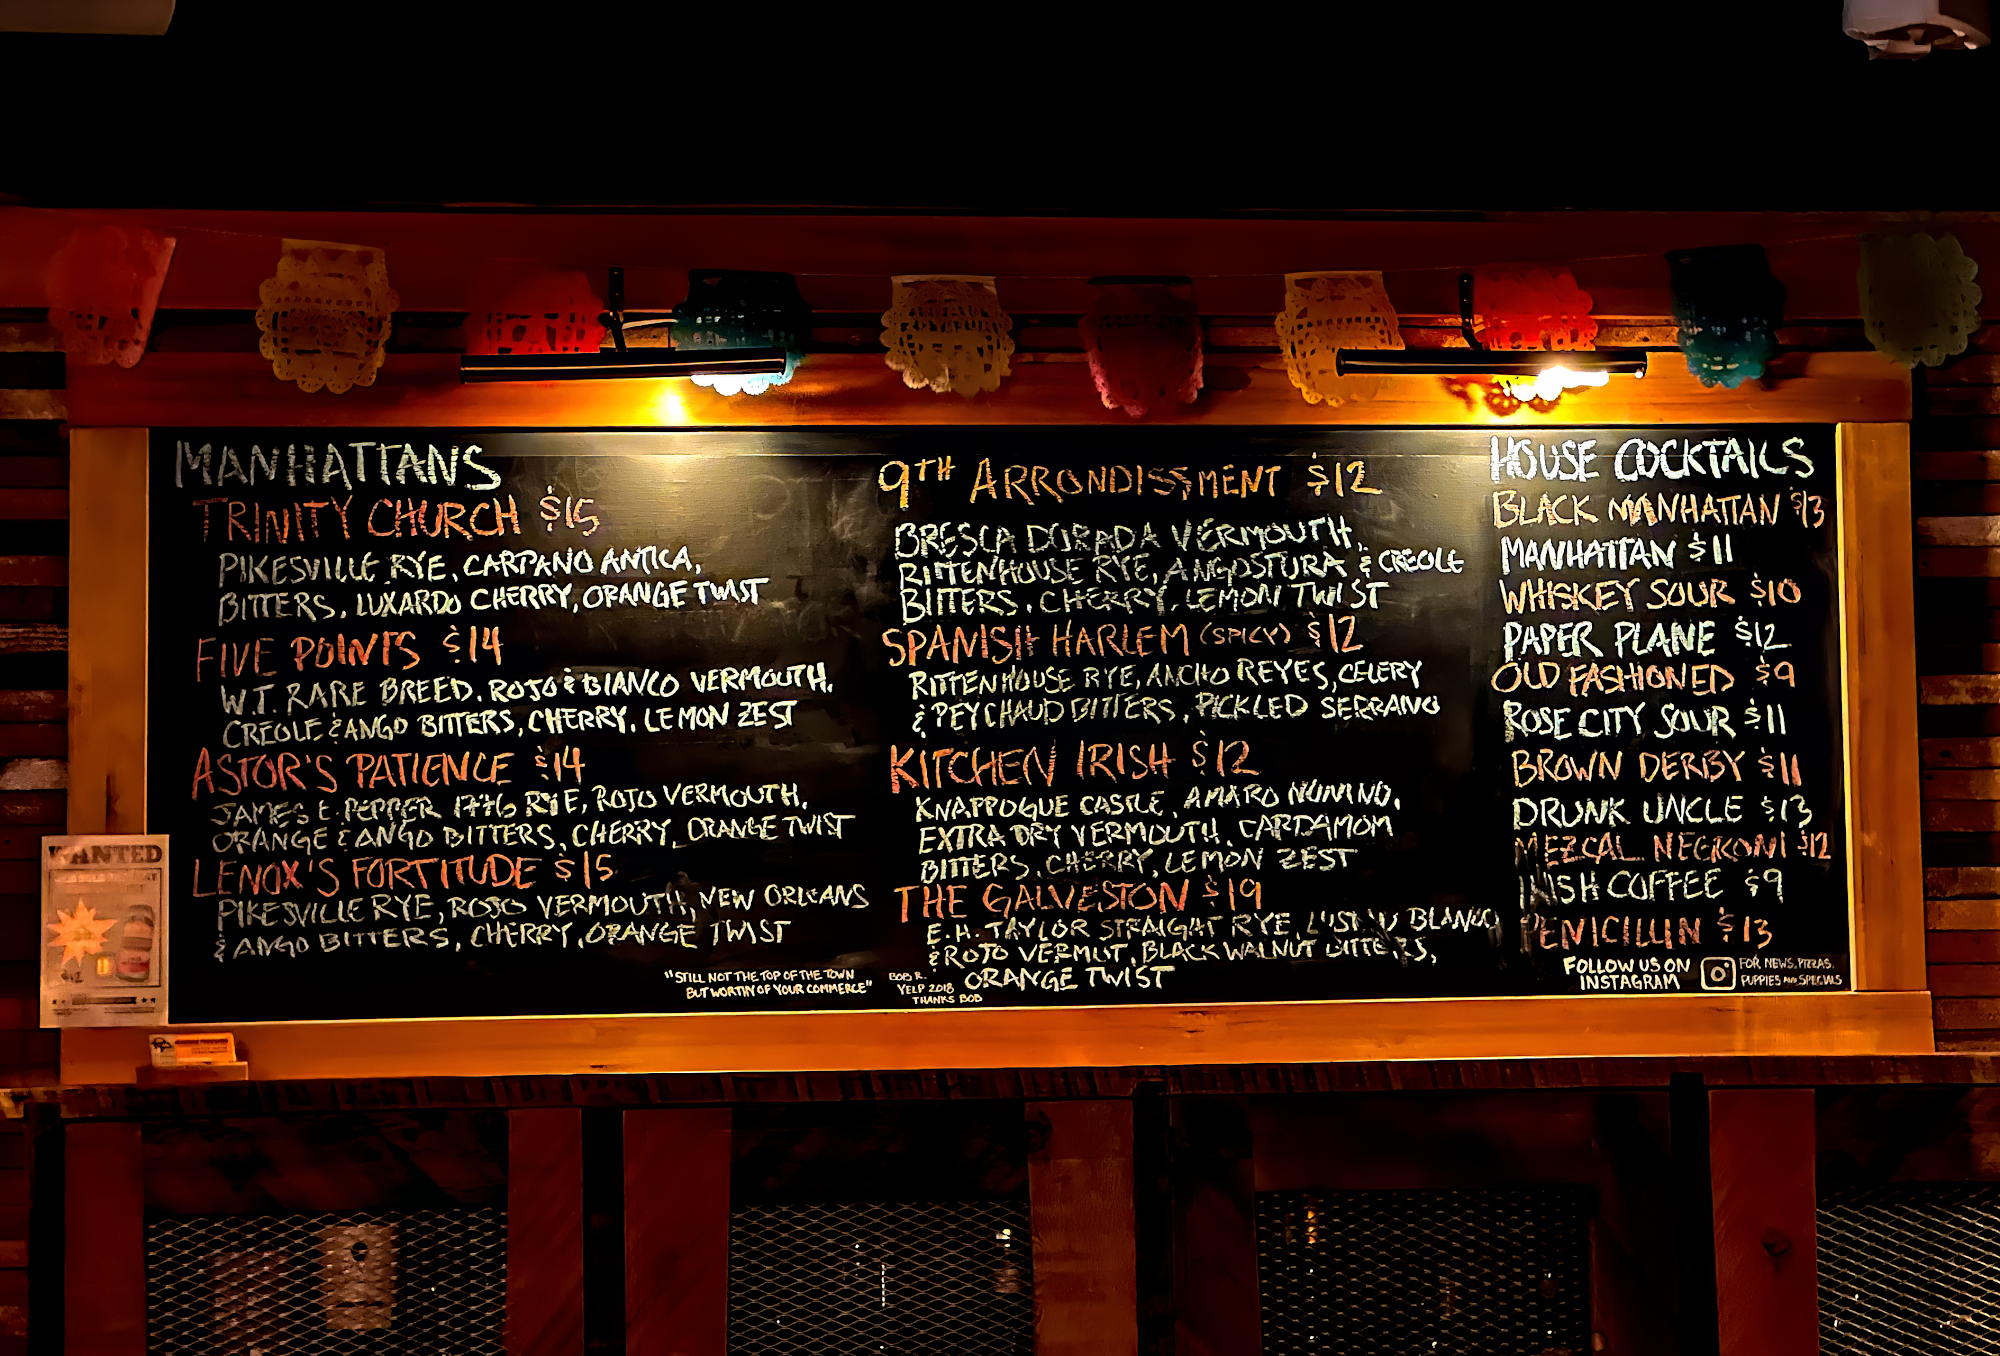 MANHATTANS
TRINITY CHURCH $15
PIKESVILLE RYE, CARPANO ANTICA,
BITTERS, LUXARDO CHERRY, ORANGE TWIST
FIVE POINTS $14
W.T. RARE BREED, ROJO & BIANCO VERMOUTH,
CREOLE & ANGO BITTERS, CHERRY, LEMON ZEST
ASTOR'S PATIENCE $14
JAMES E. PEPPER 1776 RYE, ROJO VERMOUTH,
ORANGE & ANGO BITTERS, CHERRY, ORANGE TWIST
LENOX'S FORTITUDE $15
PIKESVILLE RYE, ROJO VERMOUTH, NEW ORLEANS
& ANGO BITTERS, CHERRY, ORANGE TWIST
"STILL NOT THE TOP OF THE TOWN
BUT WORTHY OF YOUR COMMERCE"
BOB R.
YELP 2018
THANKS BOB
9TH ARRONDISSMENT $12
BRESCA DORADA VERMOUTH,
RITTENHOUSE RYE, ANGOSTURA & CREOLE
BITTERS, CHERRY, LEMON TWIST
SPANISH HARLEM (SPICY) $12
RITTENHOUSE RYE, ANCHO REYES, CELERY
& PEYCHAUD BITTERS, PICKLED SERRANO
KITCHEN IRISH $12
KNAPPOGUE CASTLE, AMARO NONINO,
EXTRA DRY VERMOUTH, CARDAMOM
BITTERS, CHERRY, LEMON ZEST
THE GALVESTON $19
E.H. TAYLOR STRAIGHT RYE, LUSTAU BLANCO
& ROJO VERMUT, BLACK WALNUT BITTERS,
ORANGE TWIST
HOUSE COCKTAILS
BLACK MANHATTAN $13
MANHATTAN $11
WHISKEY SOUR $10
PAPER PLANE $12
OLD FASHIONED $9
ROSE CITY SOUR $11
BROWN DERBY $11
DRUNK UNCLE $13
MEZCAL NEGRONI $12
IRISH COFFEE $9
PENICILLIN $13
FOLLOW US ON
INSTAGRAM
FOR NEWS, PIZZAS,
PUPPIES AND SPECIALS
WANTED